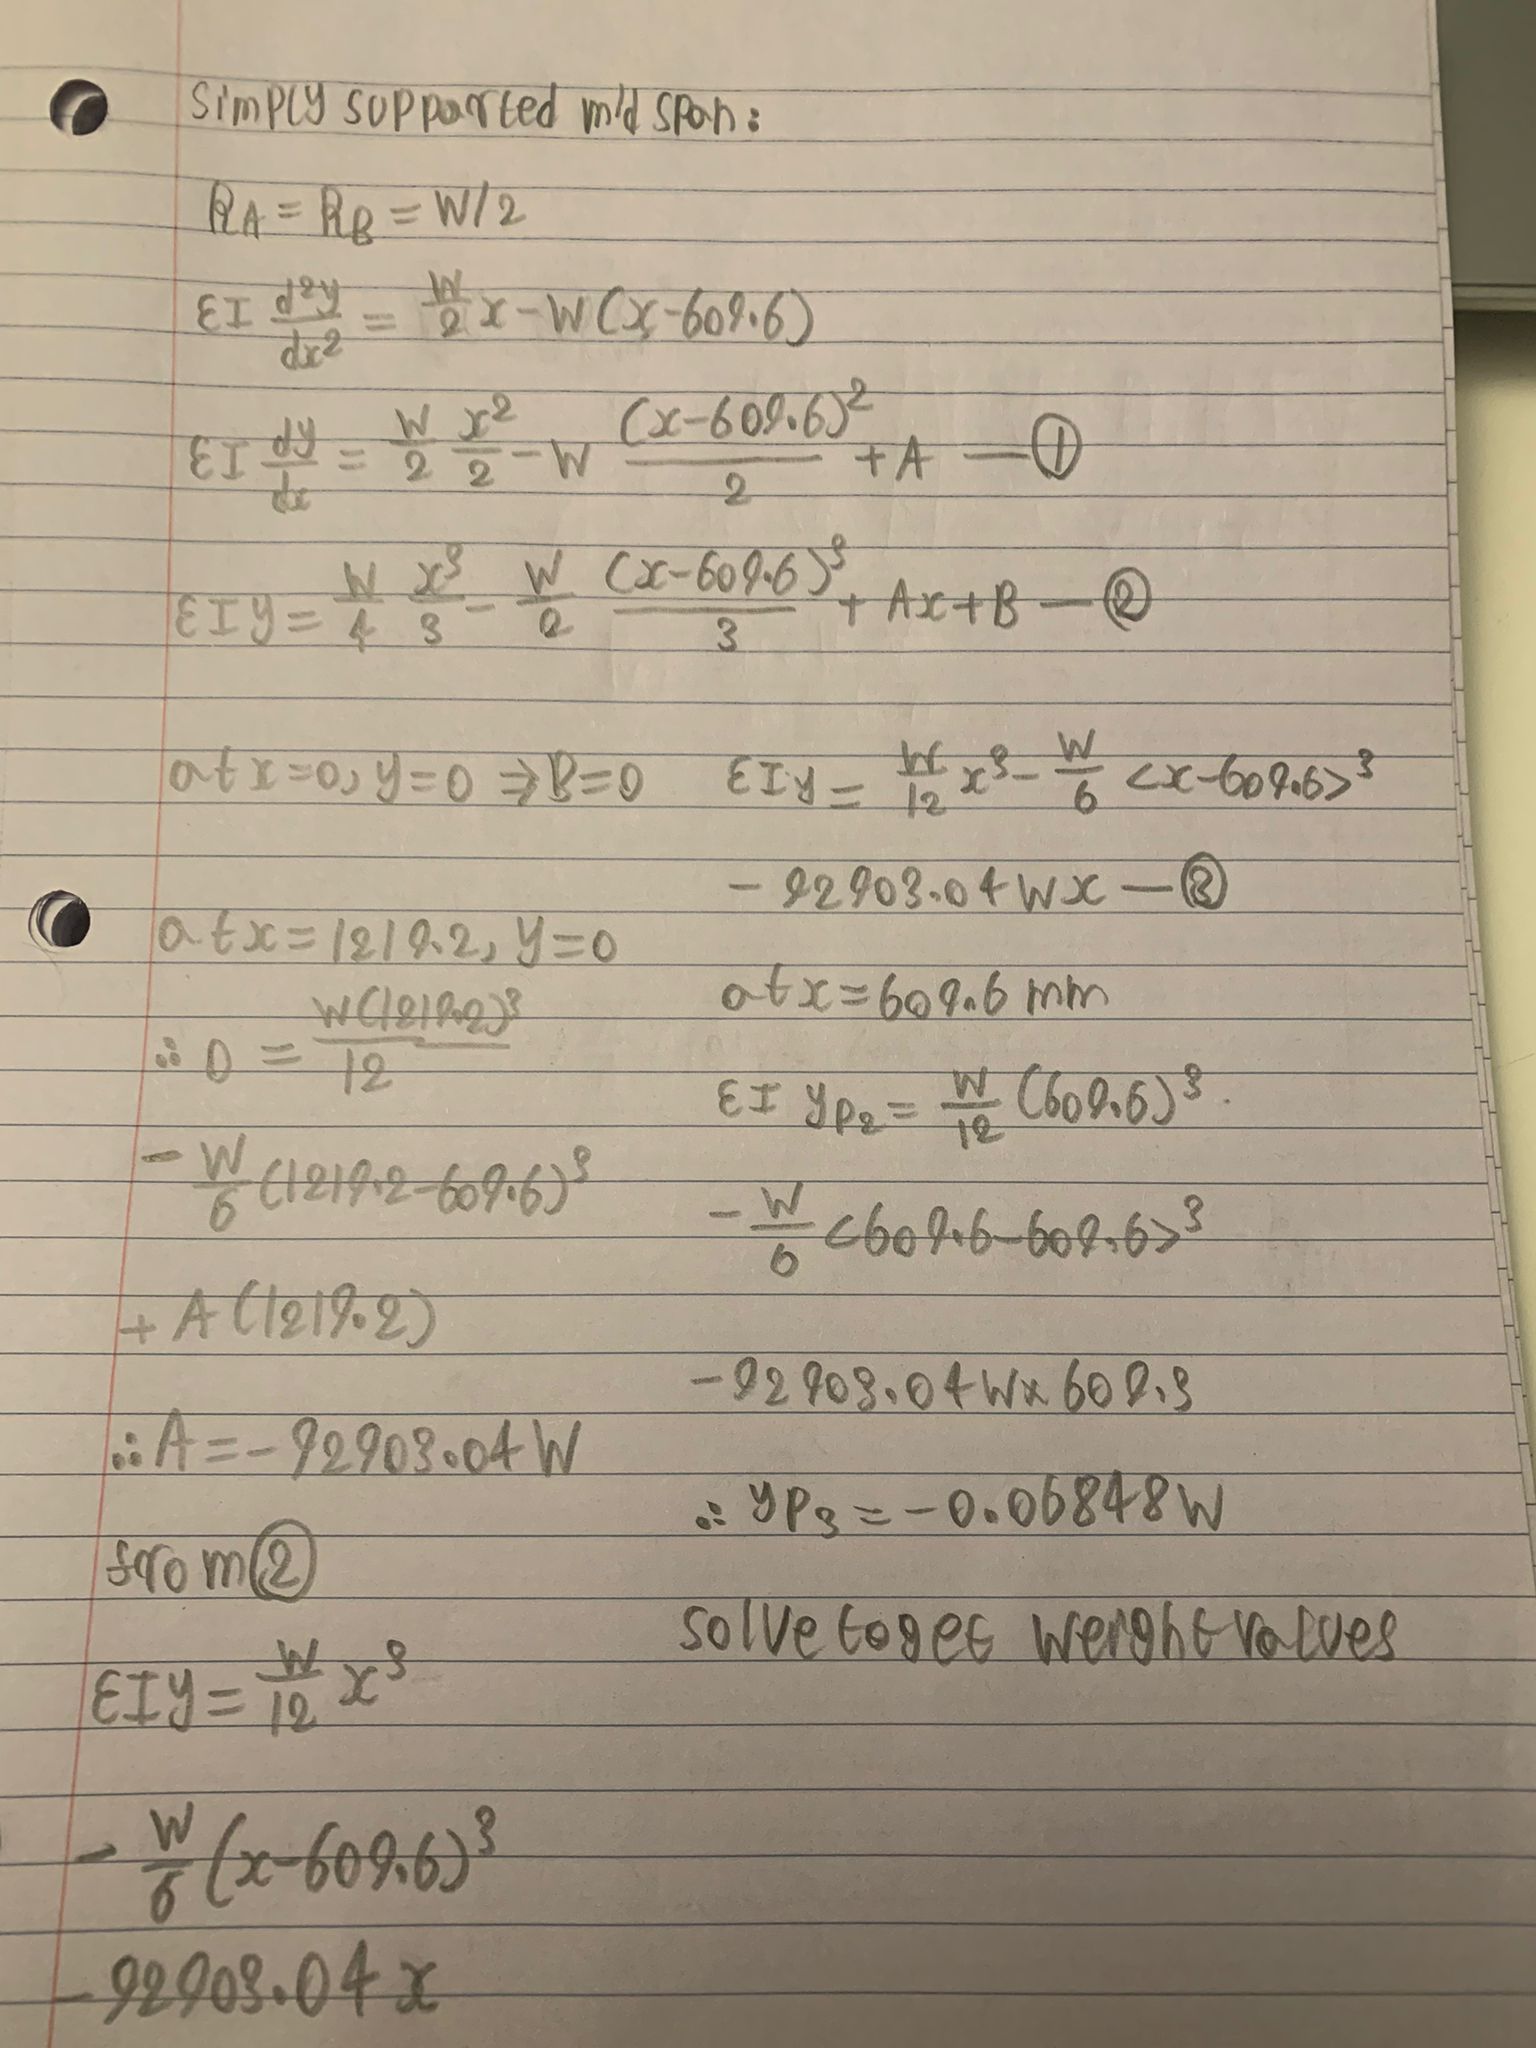 Simply supported mid span:
RA = RB = W/2
EI d²y/dx² = W/2 x - W(x-609.6)
EI dy/dx = W/2 x²/2 - W (x-609.6)²/2 + A — ①
EIy = W/4 x³/3 - W/2 (x-609.6)³/3 + Ax + B — ②
at x=0, y=0 ⇒ B=0
at x=1219.2, y=0
∴ 0 = W(1219.2)³/12
- W/6 (1219.2-609.6)³
+ A(1219.2)
∴ A = -92903.04W
from ②
EIY = W/12 x³
- W/6 (x-609.6)³
-92903.04x
EIy = W/12 x³ - W/6 <x-609.6>³
- 92903.04Wx — ③
at x=609.6mm
EI yP2 = W/12 (609.6)³
- W/6 <609.6-609.6>³
-92903.04Wx609.3
∴ yP3 = -0.06848W
solve to get weight values